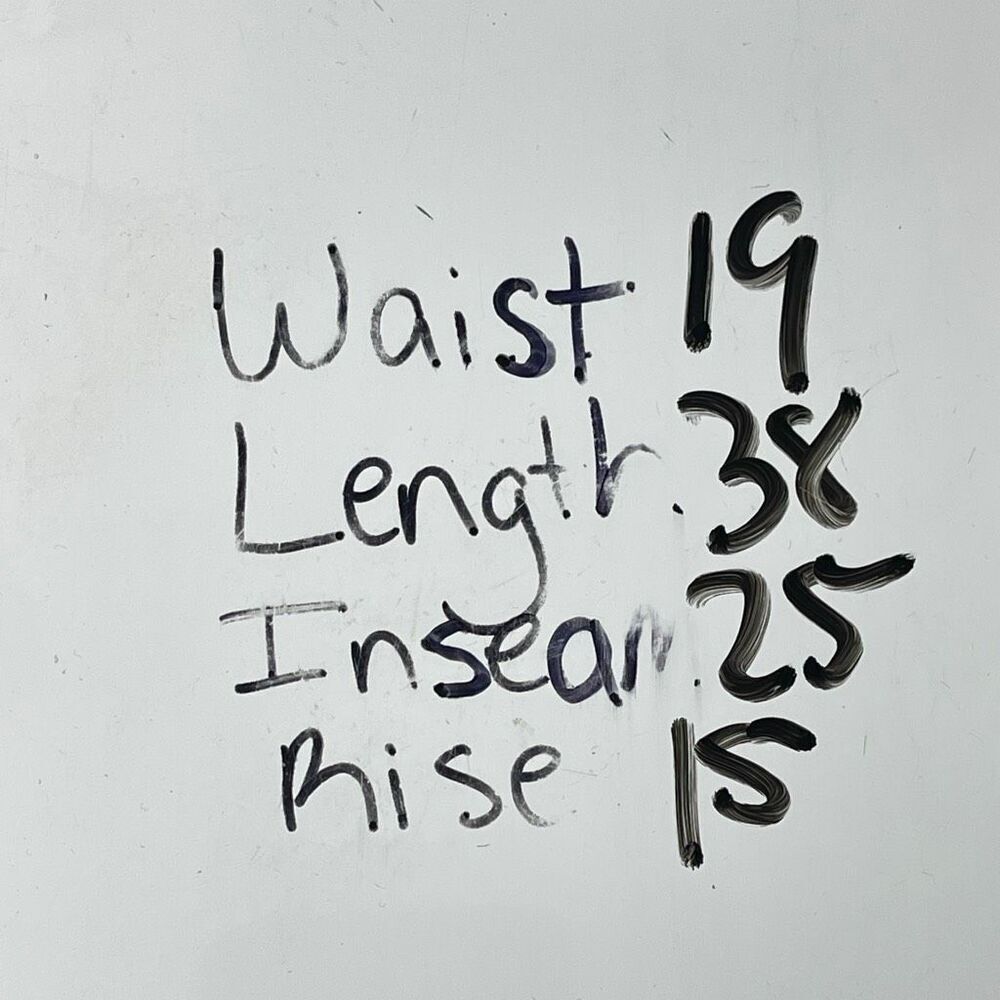 Waist 19
Length. 38
Inseam. 25
Rise 15